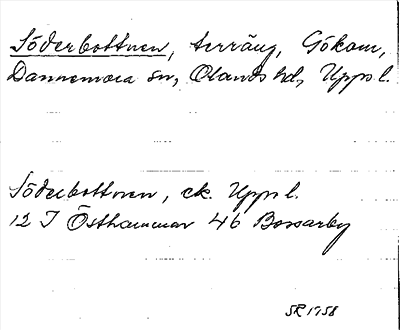 Söderbottnen, terräng, Gökom,
Dannemora sn, Olands hd, Upps l.
Söderbottnen, ek. Upps l.
12 I Östhammar 46 Bossarby
SR 1958